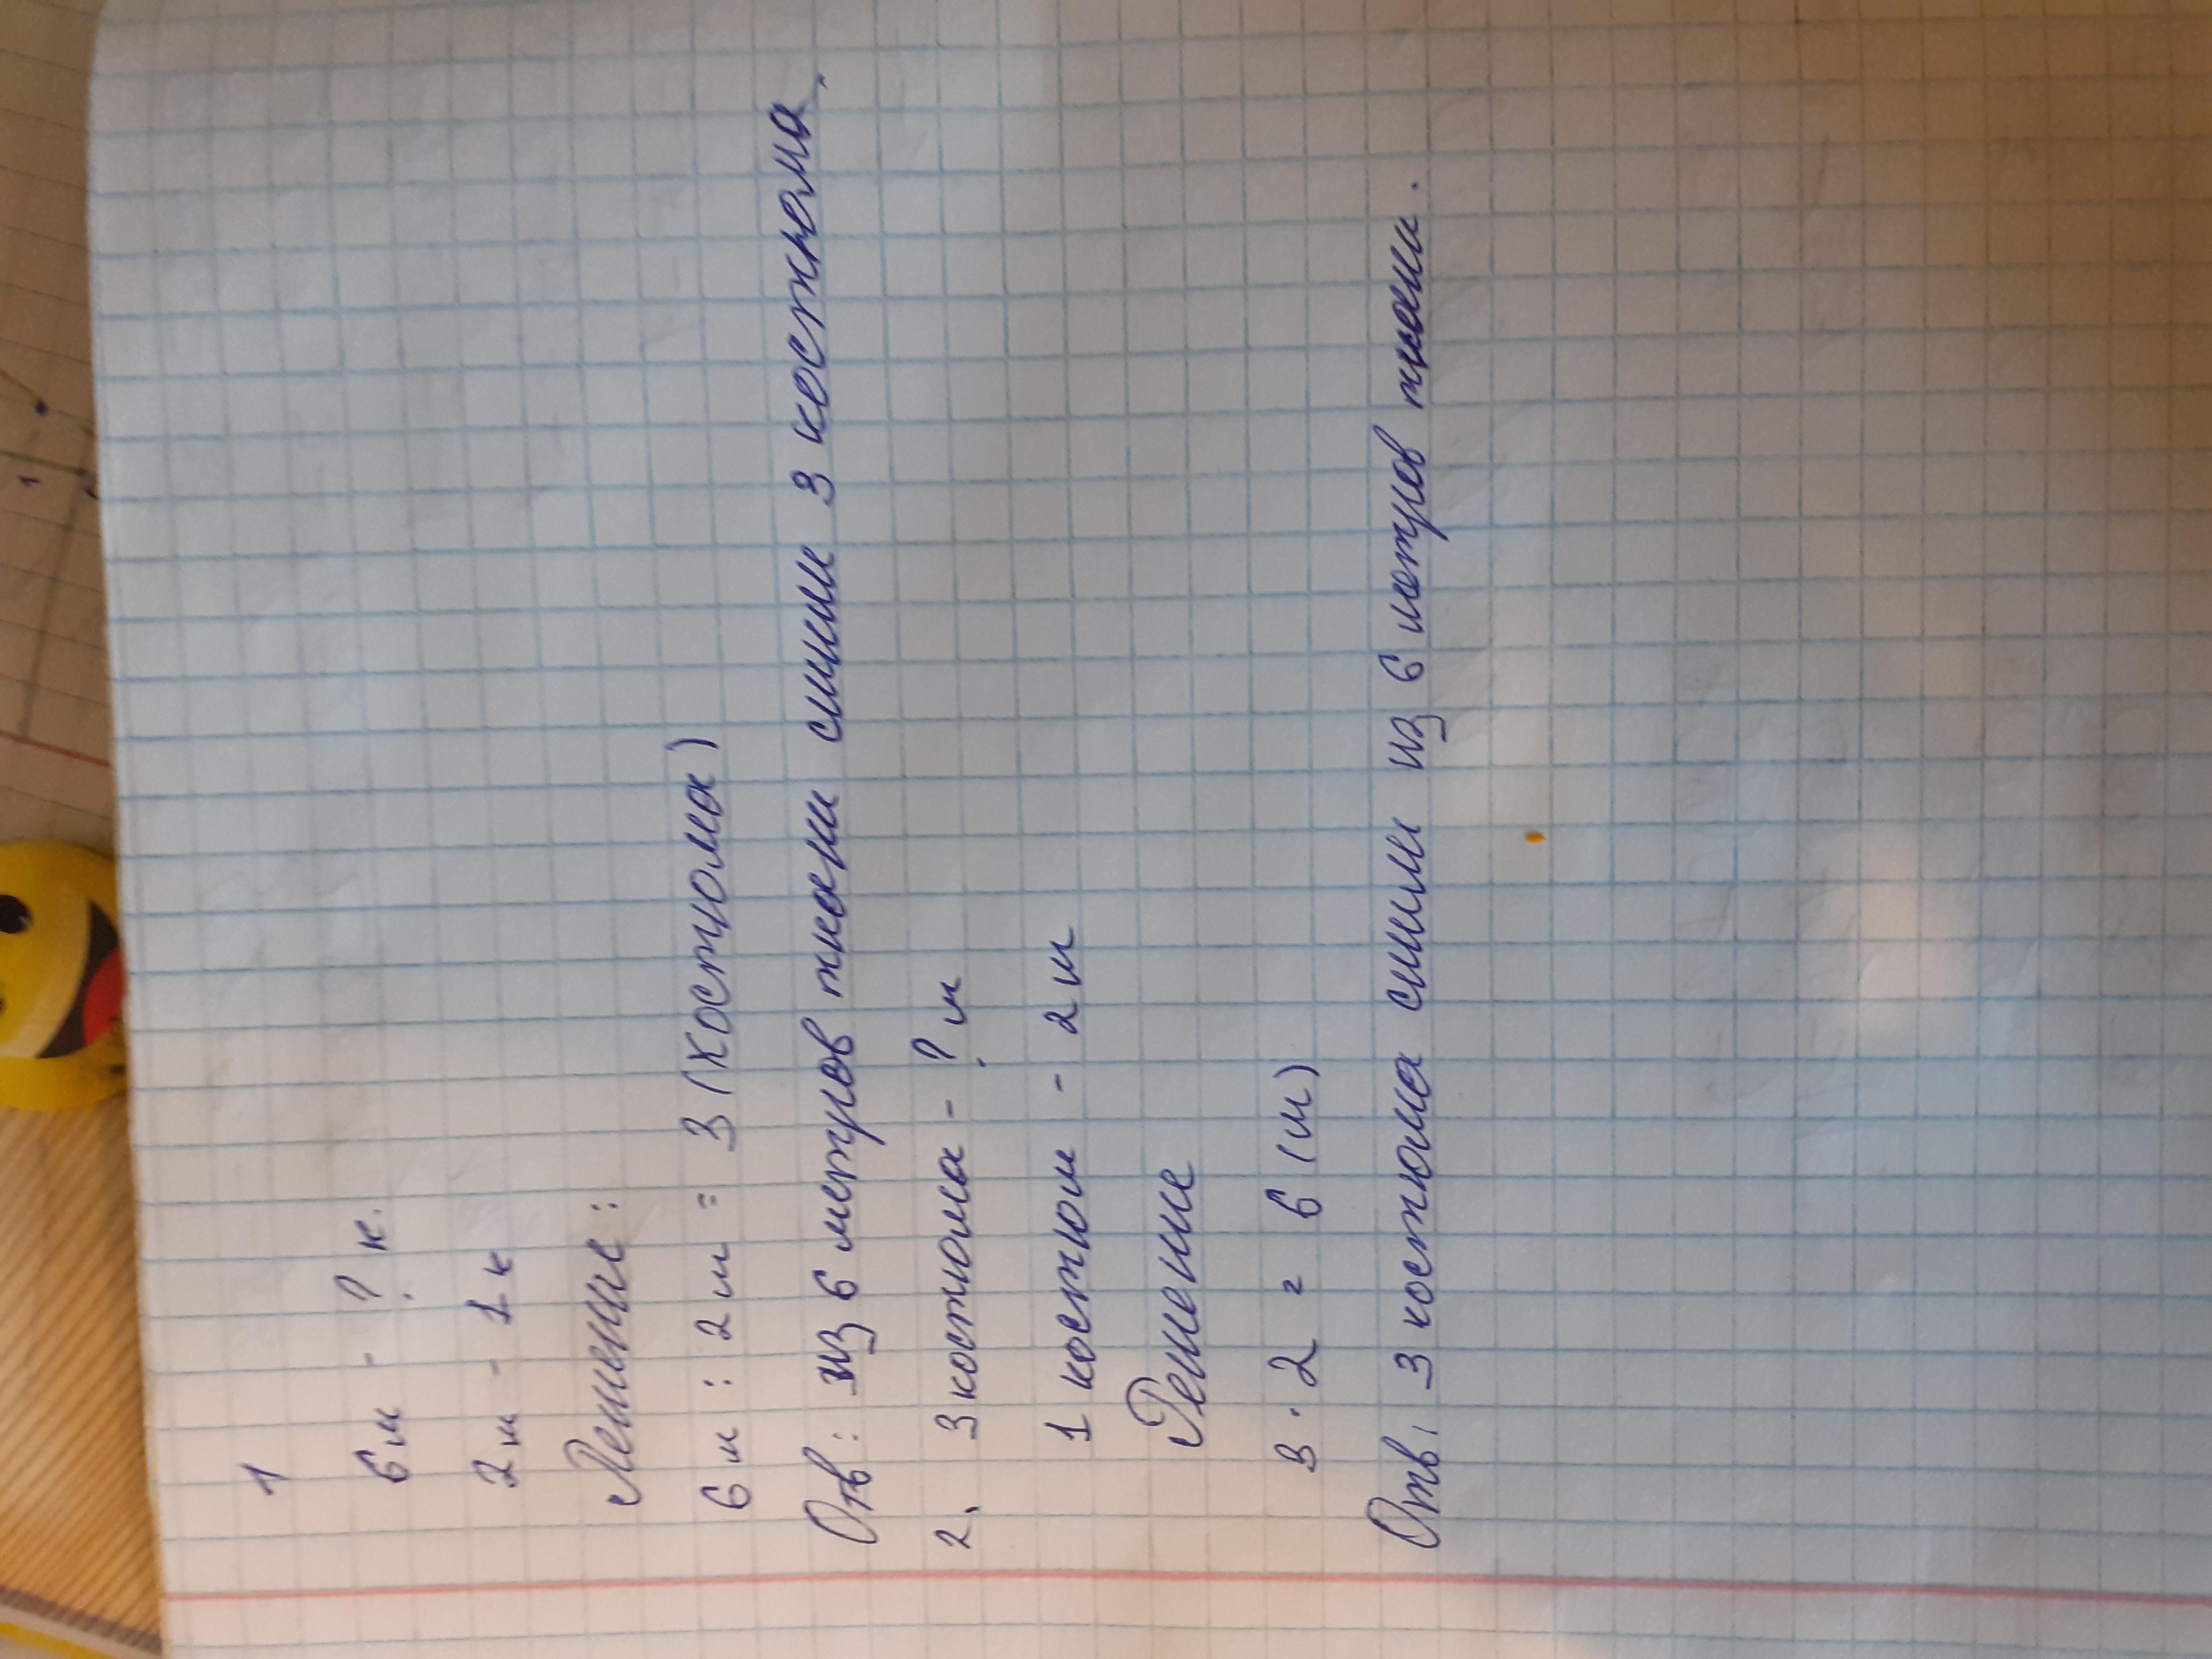 1
6м - ? к.
2м - 1к
Решение:
6м : 2м = 3 (костюма)
Отв: из 6 метров ткани сшили 3 костюма.
2. 3 костюма - ? м
1 костюм - 2 м
Решение
3 · 2 = 6 (м)
Отв: 3 костюма сшили из 6 метров ткани.
1